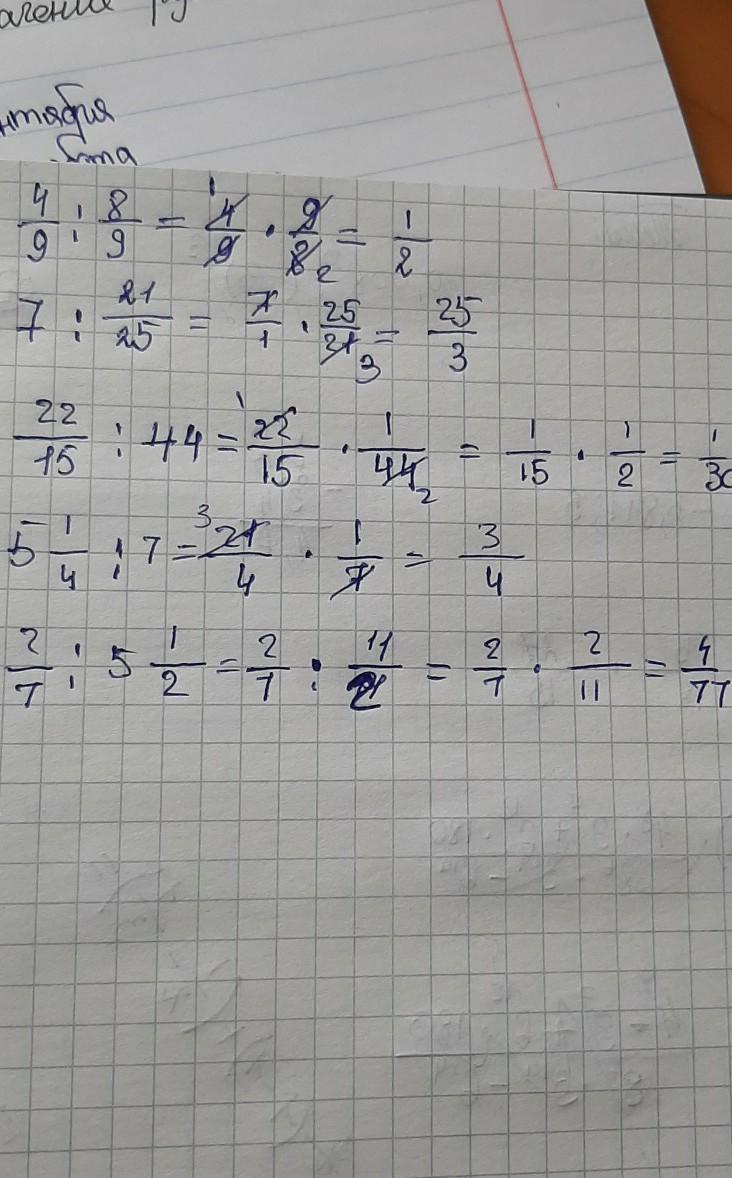 нтября
4/9 : 8/9 = 4/9 · 9/8 = 1/2
7 : 21/25 = 7/1 · 25/21 = 25/3
22/15 : 44 = 22/15 · 1/44 = 1/15 · 1/2 = 1/30
5 1/4 : 7 = 21/4 · 1/7 = 3/4
2/7 : 5 1/2 = 2/7 : 11/2 = 2/7 · 2/11 = 4/77